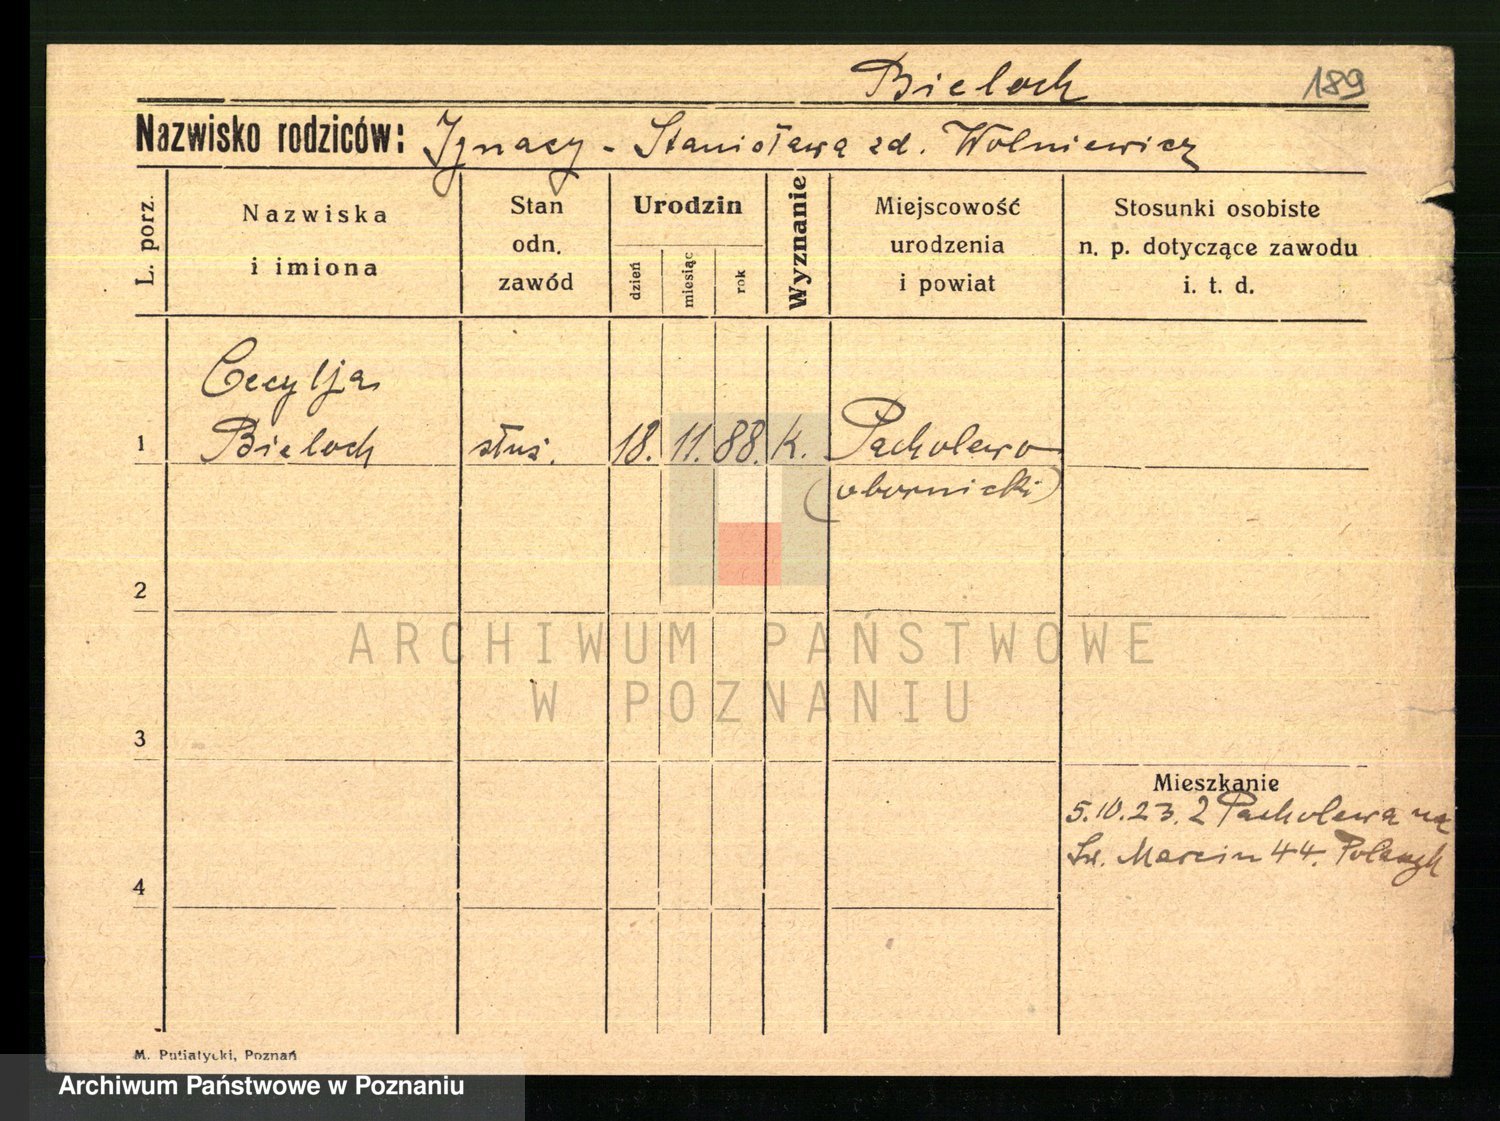 Bieloch 189
Nazwisko rodziców: Ignacy - Stanisława zd. Wolniewicz
L. porz.
Nazwiska
i imiona
Stan
odn.
zawód
Urodzin
dzień
miesiąc
rok
Wyznanie
Miejscowość
urodzenia
i powiat
Stosunki osobiste
n. p. dotyczące zawodu
i. t. d.
Cecylja
1 Bieloch służ. 18. 11. 88. k. Pacholewo
(obornicki)
2
ARCHIWUM PAŃSTWOWE
W POZNANIU
3
Mieszkanie
5.10.23. z Pacholewa na
Św. Marcin 44.
4
M. Putiatycki, Poznań
Archiwum Państwowe w Poznaniu